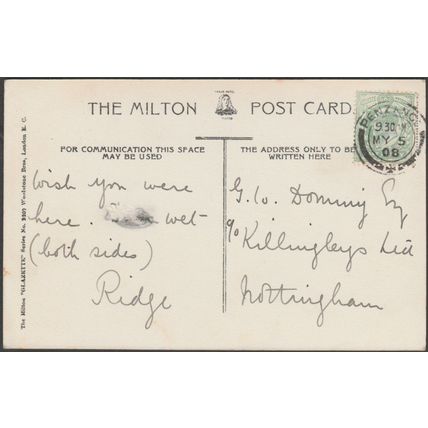 THE MILTON POST CARD.
PENZANCE
9.30
MY 5
08
FOR COMMUNICATION THIS SPACE
MAY BE USED
THE ADDRESS ONLY TO BE
WRITTEN HERE
Wish you were
here. wet
(both sides)
Ridge
G. W. Esq
c/o Killingleys Ltd
Nottingham
The Milton "GLAZETTE" Series No. Woolstone Bros., London E. C.